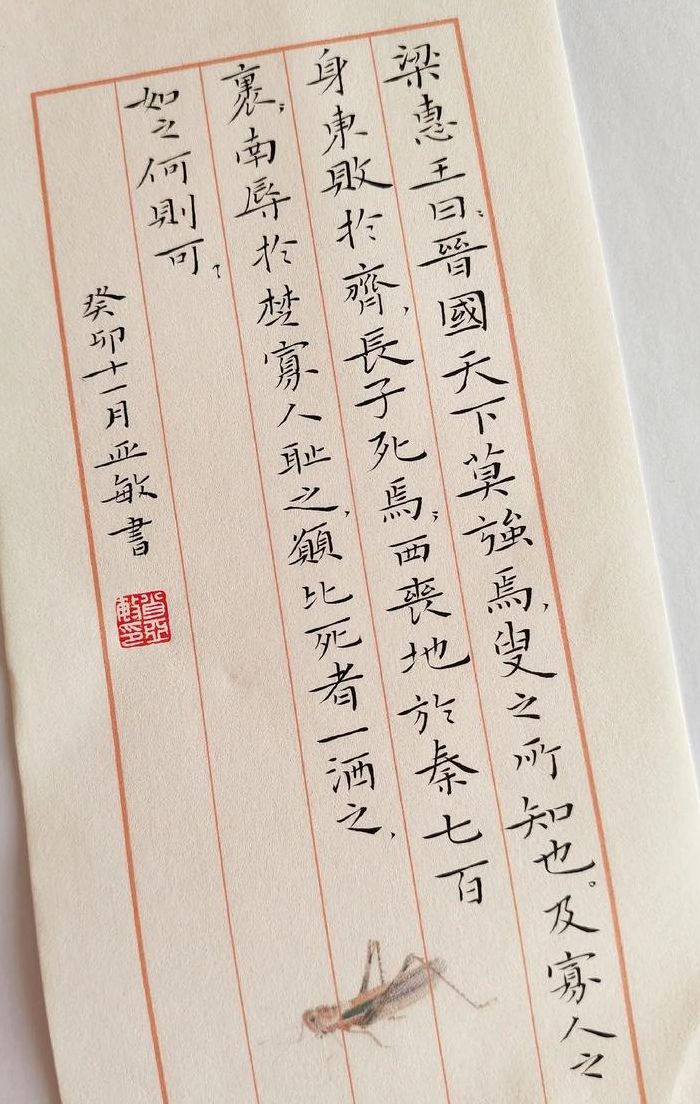 梁惠王曰：晉國天下莫強焉，叟之所知也。及寡人之
身東敗於齊，長子死焉；西喪地於秦七百
裏；南辱於楚寡人耻之，願比死者一洒之，
如之何則可？
癸卯十一月亚敏書